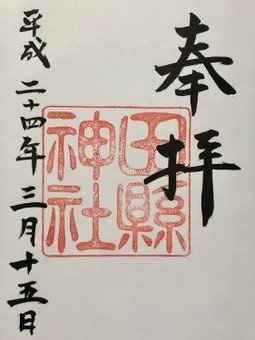 奉拝
田縣神社
平成二十四年三月十五日